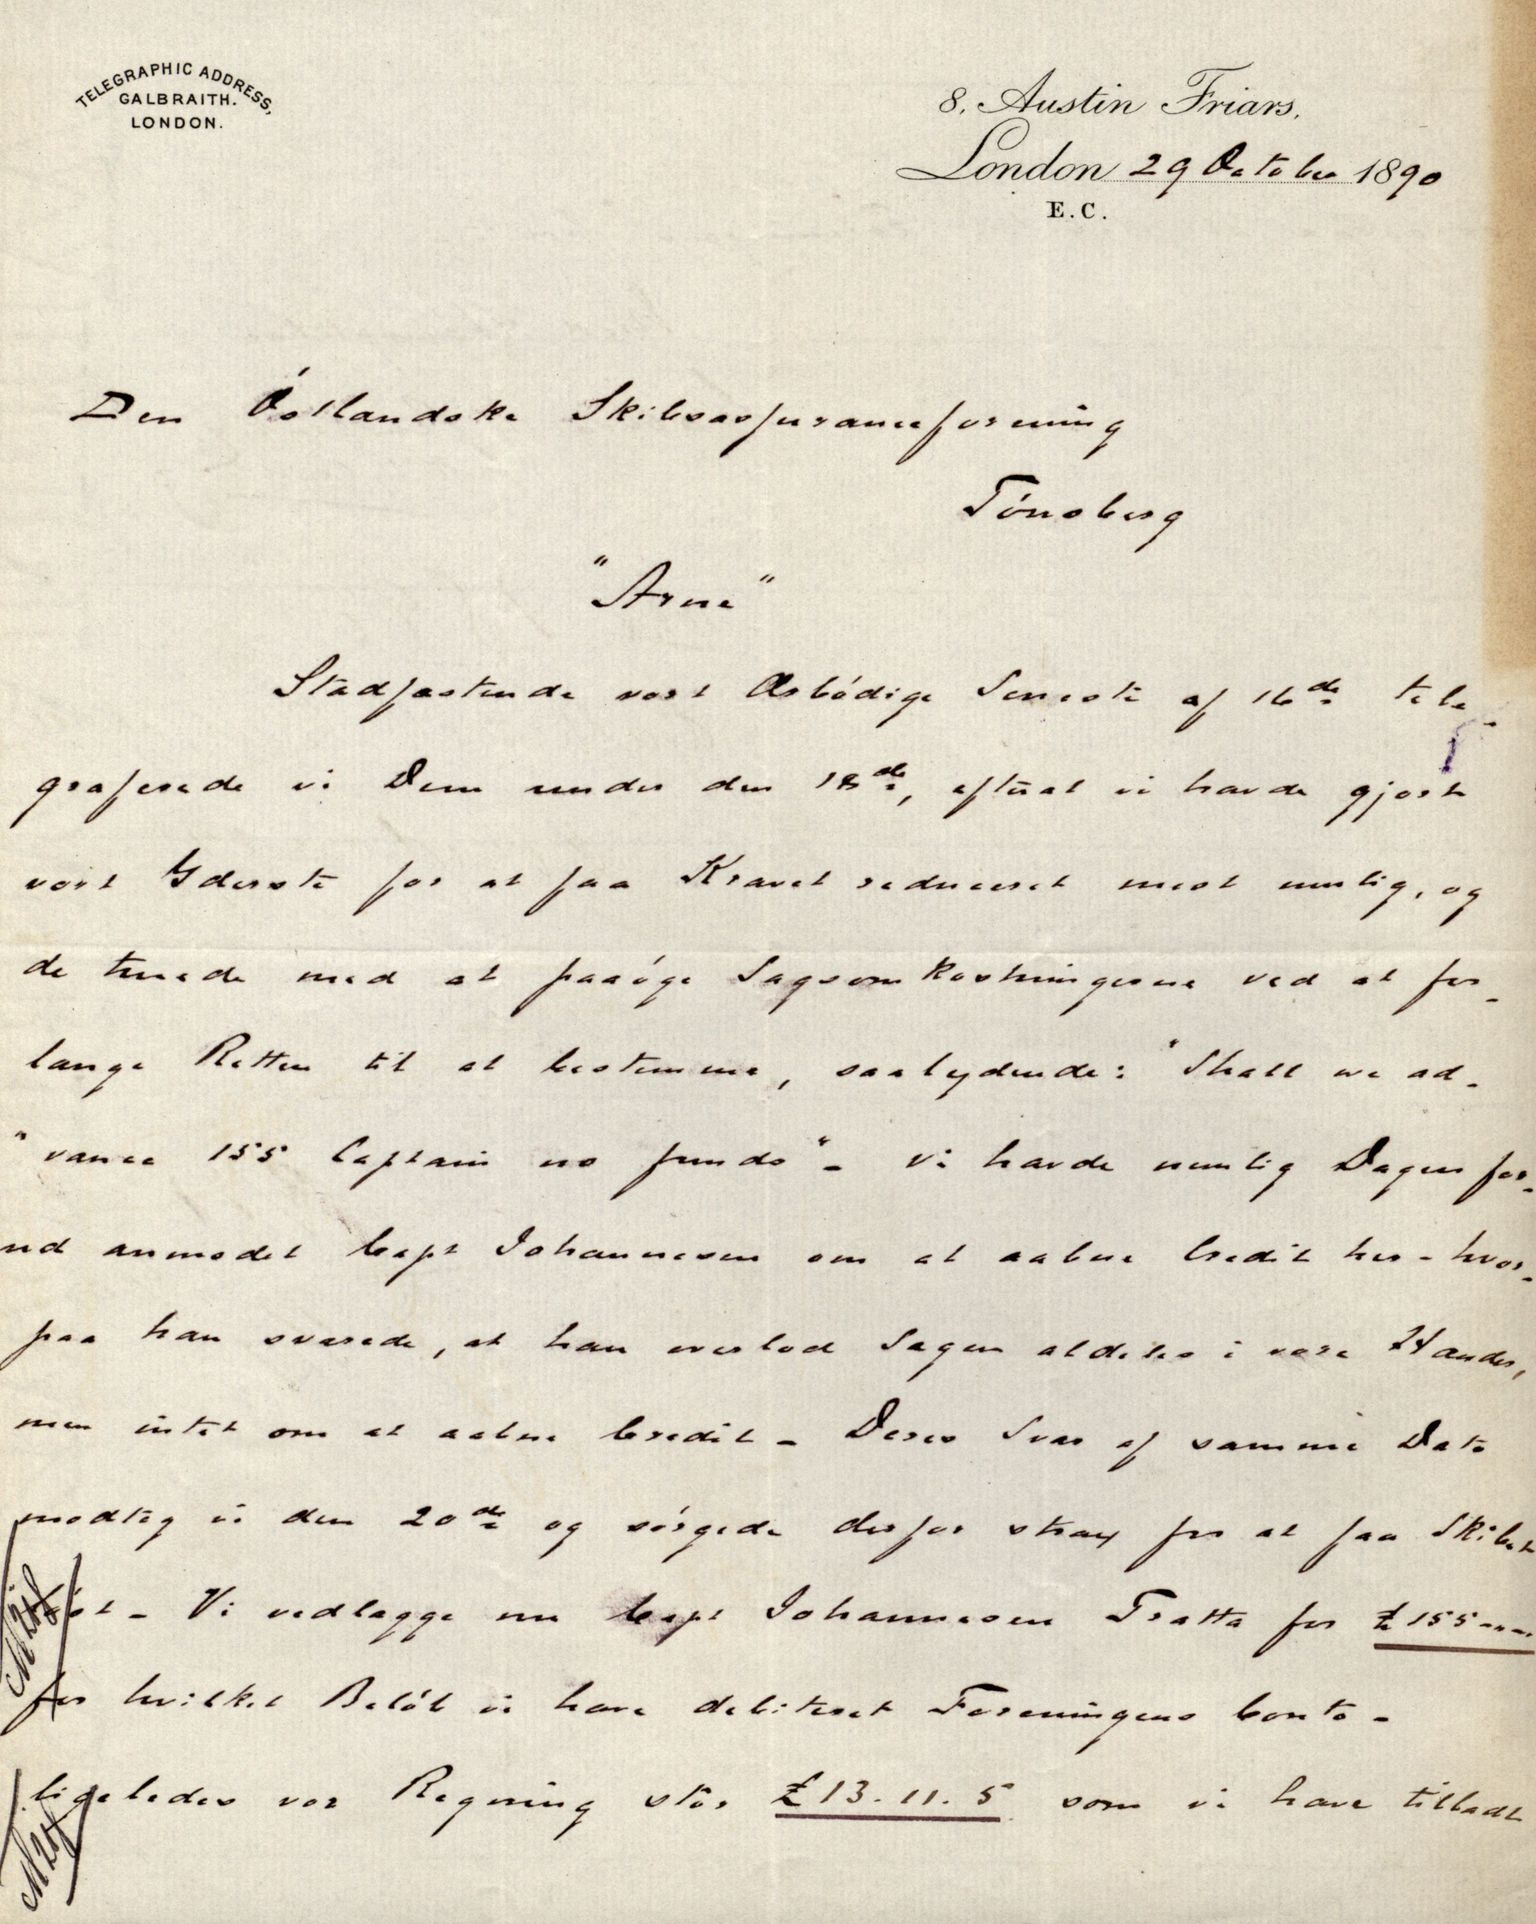 TELEGRAPHIC ADDRESS,
GALBRAITH.
LONDON.
8, Austin Friars,
London 29 October 1890
E.C.
Den Óstlandske Skibsassuranceforening
Tónsberg
"Arne"
Stadfæstende vort Ærbódige Seneste af 16de tele-
graferede vi Dem under den 18de, efterat vi havde gjort
vort Yderste for at faa Kravet reduceret mest mulig, og
de truede med at paaóge Sagsomkostningerne ved at for-
lange Retten til at bestemme, saalydende: "Shall we ad-
"vance 155 Captain no funds" - Vi havde nemlig Dagen for-
ud anmodet Capt Johannesen om at aabne Credit her - hvor-
paa han svarede, at han overlod Sagen aldeles i vore Hænder,
men intet om at aabne Credit - Deres Svar af samme Dato
modtog vi den 20de og sórgede derfor strax for at faa Skibet
lóst - Vi vedlægge nu Capt Johannesens Tratta for £155.-.-
for hvilket Belób vi have debiteret Foreningens Conto -
ligeledes vor Regning stor £13.11.5 som vi have tilladt